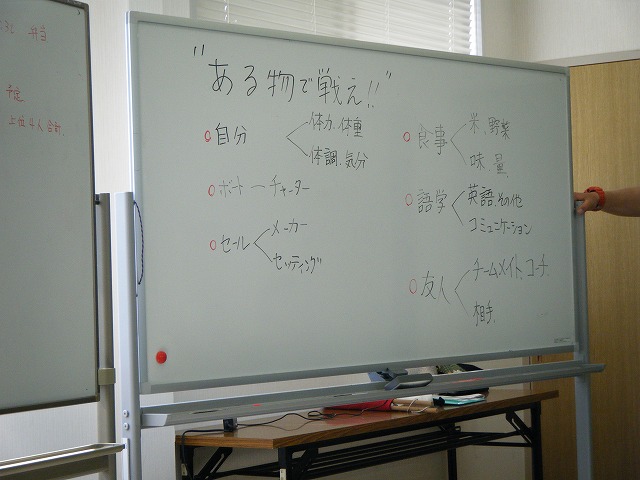 弁当
予定
上位4人合計.
"ある物で戦え!!"
○自分
体力、体重
体調、気分
○ボート—チャーター
○セール
メーカー
セッティング
○食事
米、野菜
味、量
○語学
英語、その他
コミュニケーション
○友人
チームメイト、コーチ
相手.